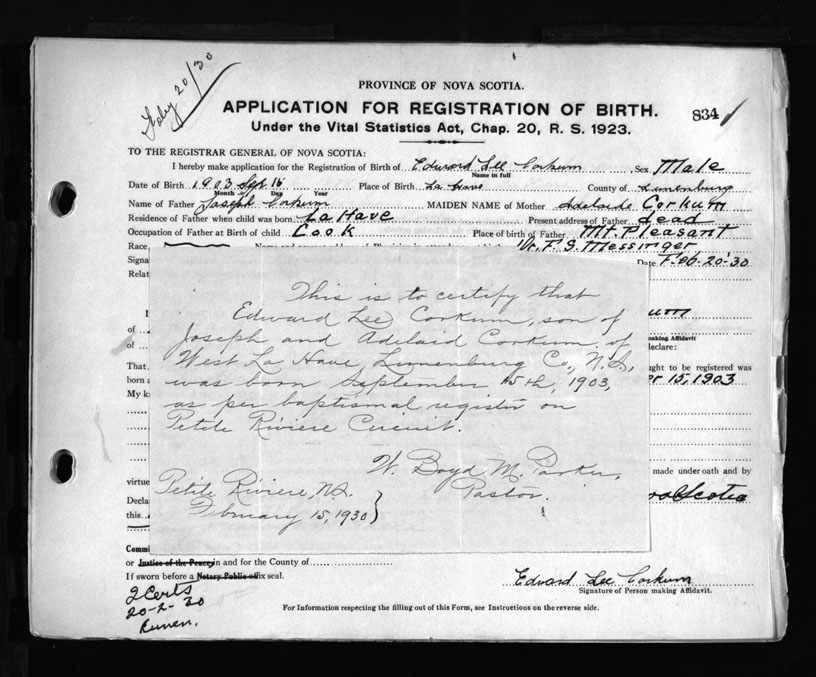 Feby 20/30
PROVINCE OF NOVA SCOTIA.
APPLICATION FOR REGISTRATION OF BIRTH.
834
Under the Vital Statistics Act, Chap. 20, R. S. 1923.
TO THE REGISTRAR GENERAL OF NOVA SCOTIA:
I hereby make application for the Registration of Birth of Edward Lee Corkum Sex Male
Name in full
Date of Birth 1903 Sept 15 Place of Birth La Have County of Lunenburg
Month Day Year
Name of Father Joseph Corkum MAIDEN NAME of Mother Adelaide Corkum
Residence of Father when child was born La Have Present address of Father dead
Occupation of Father at Birth of child Cook Place of birth of Father Mt. Pleasant
Race, Dr. F. S. Messinger
Signa Date Feb-20-'30
Relat
This is to certify that
Edward Lee Corkum, son of
Joseph and Adelaid Corkum of
West La Have Lunenburg Co., N.S.,
was born September 15th, 1903,
as per baptismal register on
Petite Riviere Circuit.
W. Boyd M. Parker,
Pastor.
Petite Riviere, N.S.
February 15, 1930
um
making Affidavit
declare:
That, ought to be registered was
born a er 15, 1903
My k
made under oath and by
virtue
Decla Scotia
this
Commi
or Justice of the Peace in and for the County of
If sworn before a Notary Public affix seal.
Edward Lee Corkum
Signature of Person making Affidavit.
2 Certs
20-2-30
For Information respecting the filling out of this Form, see Instructions on the reverse side.